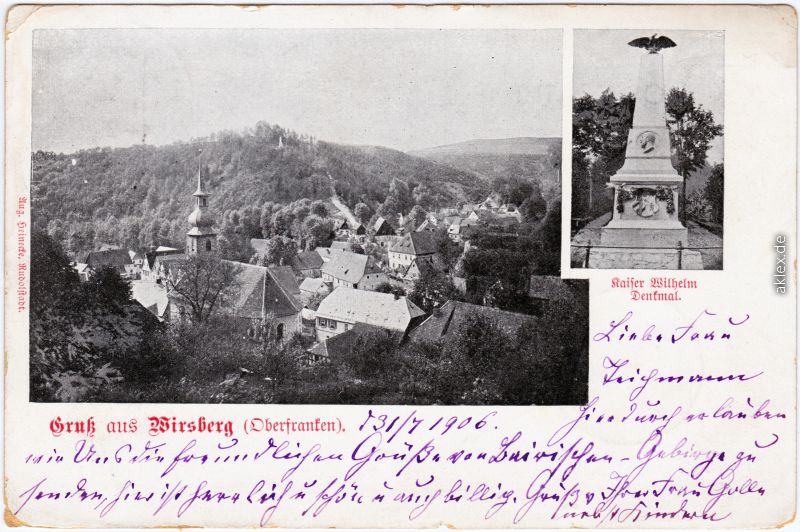 Aug. Heinecke, Rudolstadt.
Kaiser Wilhelm
Denkmal.
© aklex.de
Gruß aus Wirsberg (Oberfranken).
d 31/7 1906.
Liebe Frau
Teichmann
Hierdurch erlauben
wir Uns die freundlichen Grüße von Bairischen - Gebirge zu
senden, hier ist herrlich u schön u auch billig. Gruß v Ihrer Frau Golle
nebst Kindern